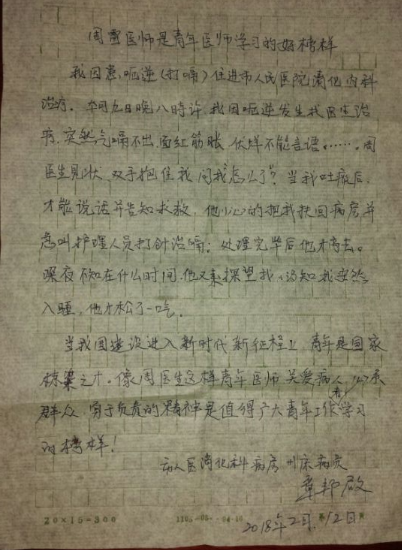 周密医师是青年医师学习的好榜样
我因患呃逆(打嗝)住进市人民医院消化内科
治疗。 日晚八時许,我因呃逆发生找医生治
疗,突然气嗝不出面红筋胀,伏炉不能言语……周
医生见状,双手抱住我问我怎么了?当我吐痰后,
才能说话并告知求救,他小心的把我扶回病房并
忽叫护理人员打针治嗝;处理完毕后他才离去。
深夜不知在什么时间,他又来探望我,得知我安然
入睡,他才松了一口气。
当我国建设进入新时代新征程上,青年是国家
栋梁之才,像周医生这样青年医师关爱病人,心系
群众,勇于负责的精神是值得广大青年工作者学习
的榜样!
市人医消化科病房 床病员
章邦启
2018年2月12日
20×15=300